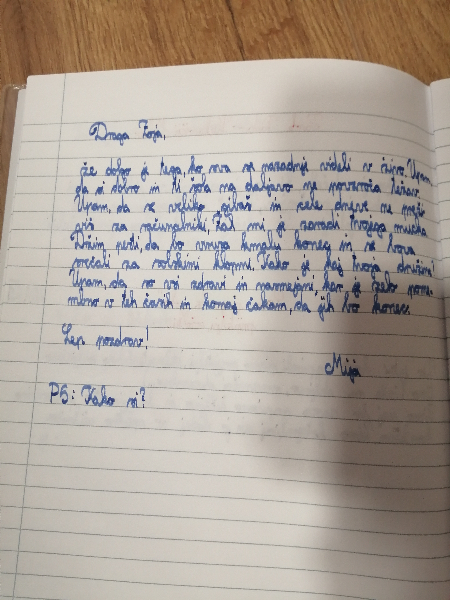 Draga Zoja,
že dolgo je tega, ko sva se nazadnje videli v živo. Upam,
da si dobro in ti šola na daljavo ne povzroča težav.
Upam, da se veliko gibaš in cele dneve ne
za računalniki. Žal mi je zaradi tvojega mucka.
Držim pesti, da bo vsega kmalu konec in se bova
srečali za šolskimi klopmi. Kako je kaj tvoja družina?
Upam, da so vsi zdravi in nasmejani, kar je zelo pome-
mbno v teh časih in komaj čakam, da jih bo konec.
Lep pozdrav!
Mija
PS: Kako si?